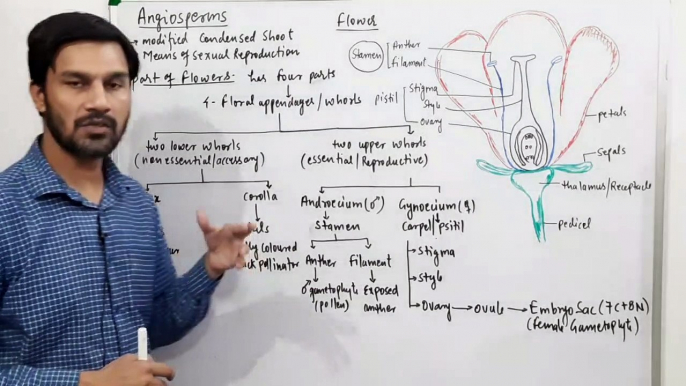 Angiosperms
Flower
→ modified Condensed Shoot
Means of Sexual Reproduction
Part of Flowers- has four parts
4- Floral appendages/whorls
two lower whorls
(non essential/accessory)
two upper whorls
(essential/Reproductive)
x
Corolla
als
ly coloured
ck pollinator
Androecium (♂)
Stamen
Anther
Filament
♂gametophyte
(pollen)
Exposed
anther
Gynoecium (♀)
Carpel/Psitil
Stigma
Style
Ovary → ovule → Embryo Sac (7C+8N)
(female Gametophyte)
Stamen
Anther
Filament
Pistil
Stigma
Style
Ovary
petals
Sepals
thalamus/Receptacle
pedicel